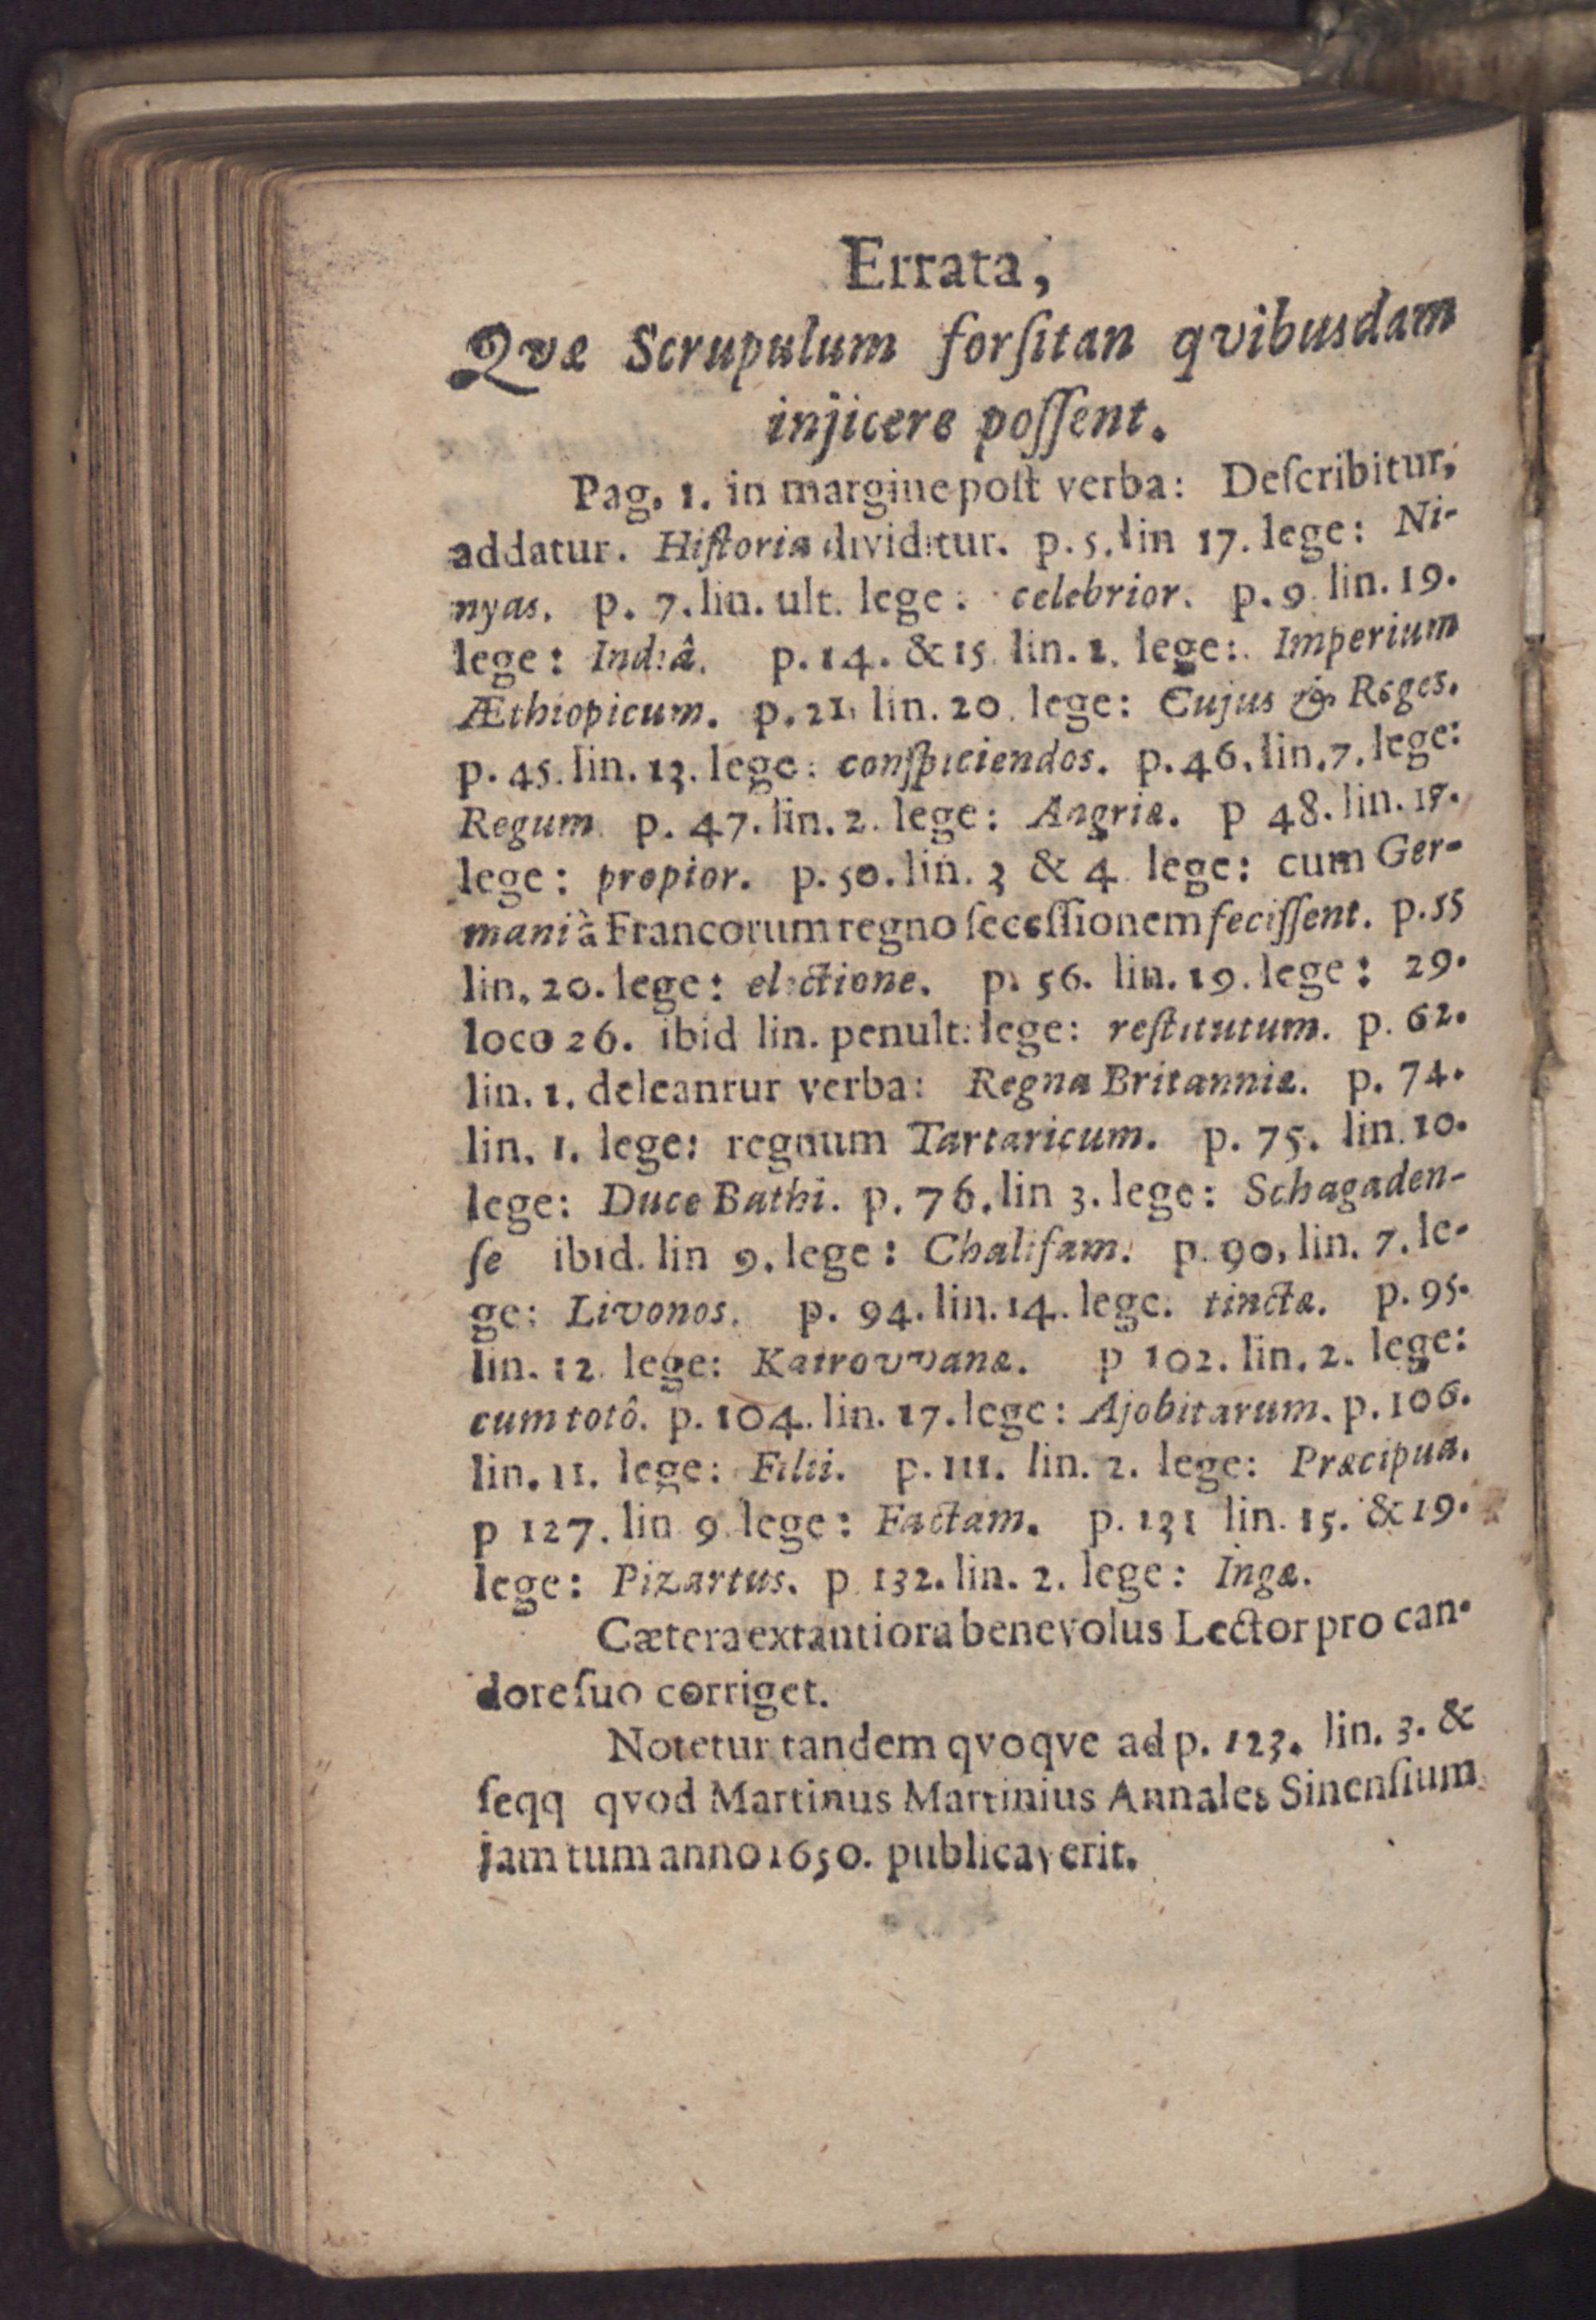 Errata,
Qvæ Scrupulum forſitan qvibusdam
injicere poſſent.
Pag. 1. in margine poſt verba: Deſcribitur,
addatur. Hiſtoria dividitur. p. 5. lin 17. lege: Ni-
nyas. p. 7. lin. ult. lege: celebrior. p. 9 lin. 19.
lege: Indiâ. p. 14. & 15 lin. 1. lege: Imperium
Æthiopicum. p. 21. lin. 20. lege: Cujus & Reges.
p. 45. lin. 13. lege: conſpiciendos. p. 46. lin. 7. lege:
Regum. p. 47. lin. 2. lege: Angriæ. p 48. lin. 18.
lege: propior. p. 50. lin. 3 & 4 lege: cum Ger-
mani à Francorum regno ſeceſſionem feciſſent. p. 55
lin. 20. lege: electione. p. 56. lin. 19. lege: 29.
loco 26. ibid lin. penult: lege: reſtitutum. p. 62.
lin. 1. deleanrur verba: Regna Britanniæ. p. 74.
lin. 1. lege: regnum Tartaricum. p. 75. lin. 10.
lege: Duce Bathi. p. 76. lin 3. lege: Schagaden-
ſe ibid. lin 9. lege: Chalifam. p. 90. lin. 7. le-
ge: Livonos. p. 94. lin. 14. lege. tinctæ. p. 95.
lin. 12. lege: Kairovvanæ. p 102. lin. 2. lege:
cum totô. p. 104. lin. 17. lege: Ajobitarum. p. 106.
lin. 11. lege: Filii. p. 111. lin. 2. lege: Præcipua.
p 127. lin 9 lege: Factam. p. 131 lin. 15. & 19.
lege: Pizartus. p 132. lin. 2. lege: Ingæ.
Cætera extantiora benevolus Lector pro can-
dore ſuo corriget.
Notetur tandem qvoqve ad p. 123. lin. 3. &
ſeqq qvod Martinus Martinius Annales Sinenſium
jam tum anno 1650. publicaverit.